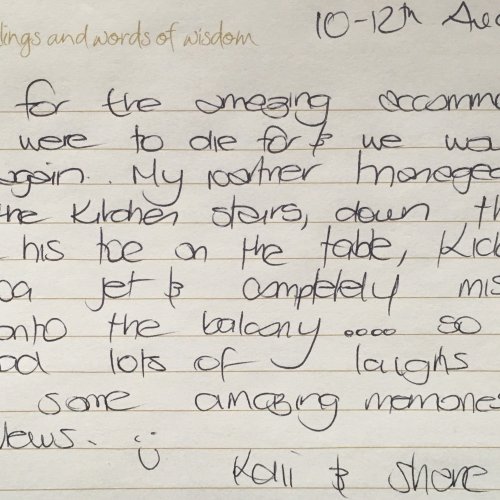 lings and words of wisdom
10-12th Au
for the amazing accommo
were to die for & we wa
again. My partner managed
the kitchen stairs, down th
his toe on the table, kick
oa jet & completely mis
onto the balcony .... so
ad lots of laughs
some amazing memories
iews. :)
Kaii & Shane